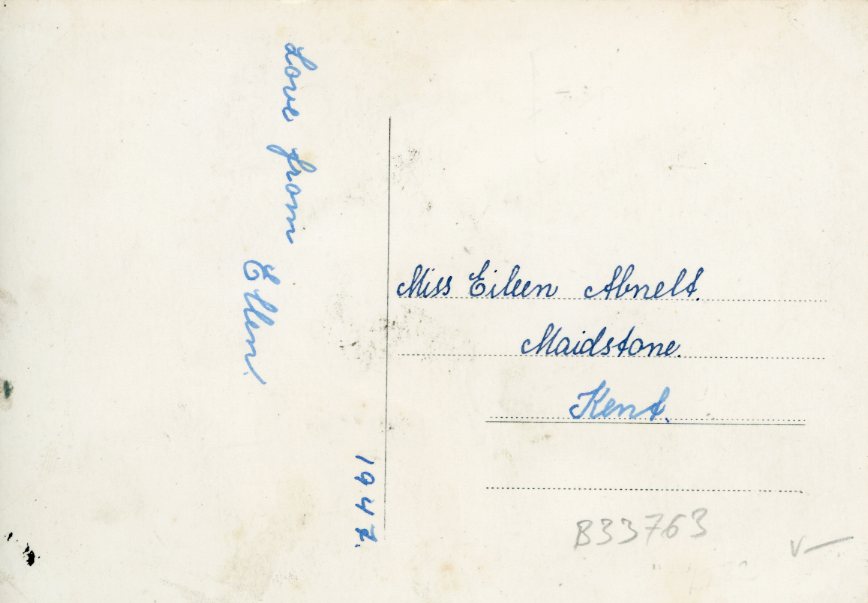 Love from
Ellen.
1947.
Miss Eileen Abnelt.
Maidstone.
Kent.
B33763